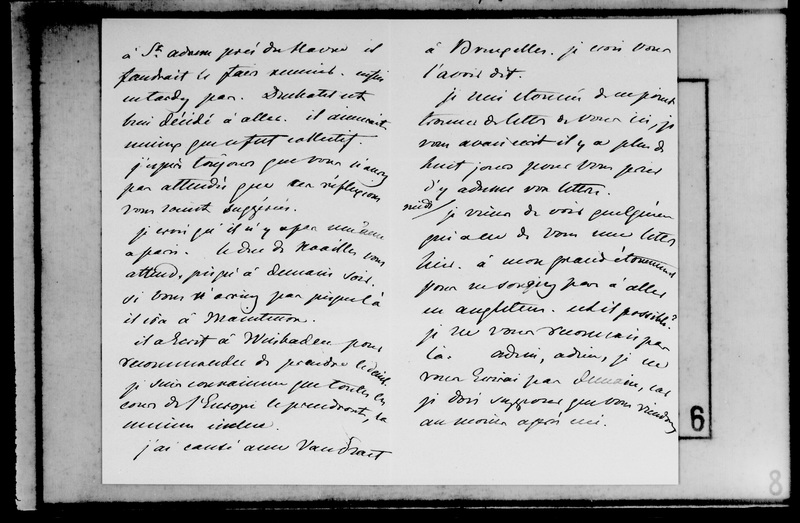 à St. adresse près du Havre il
faudrait le faire
pas.
bien décidé à aller. il aimerait
mieux que ce fut collectif.
j'espère toujours que vous n'aurez
pas attendu que ces réflexions
vous soient suggérées.
je crois qu'il n'y a pas
a paris. le duc de Noailles vous
attend jusqu'à demain soir.
si vous n'arrivez pas jusque là
il ira à Maintenon.
il a écrit à Wiesbaden pour
recommander de prendre le deuil.
je suis convaincu que toutes les
cours de l'Europe le prendront, la
même.
j'ai causé avec Van Praet
à Bruxelles. je crois vous
l'avoir dit.
je suis étonné de ne point
trouver de lettre de vous ici, je
vous avais écrit il y a plus de
huit jours pour vous prier
d'y adresser vos lettres.
midi/ je viens de voir quelqu'un
qui a eu de vous une lettre
hier. à mon grand étonnement
vous ne songiez pas à aller
en angleterre. est il possible?
je ne vous reconnais pas
là. adieu, adieu, je ne
vous écrirai pas demain, car
je dois supposer que vous viendrez
au moins après
6
8